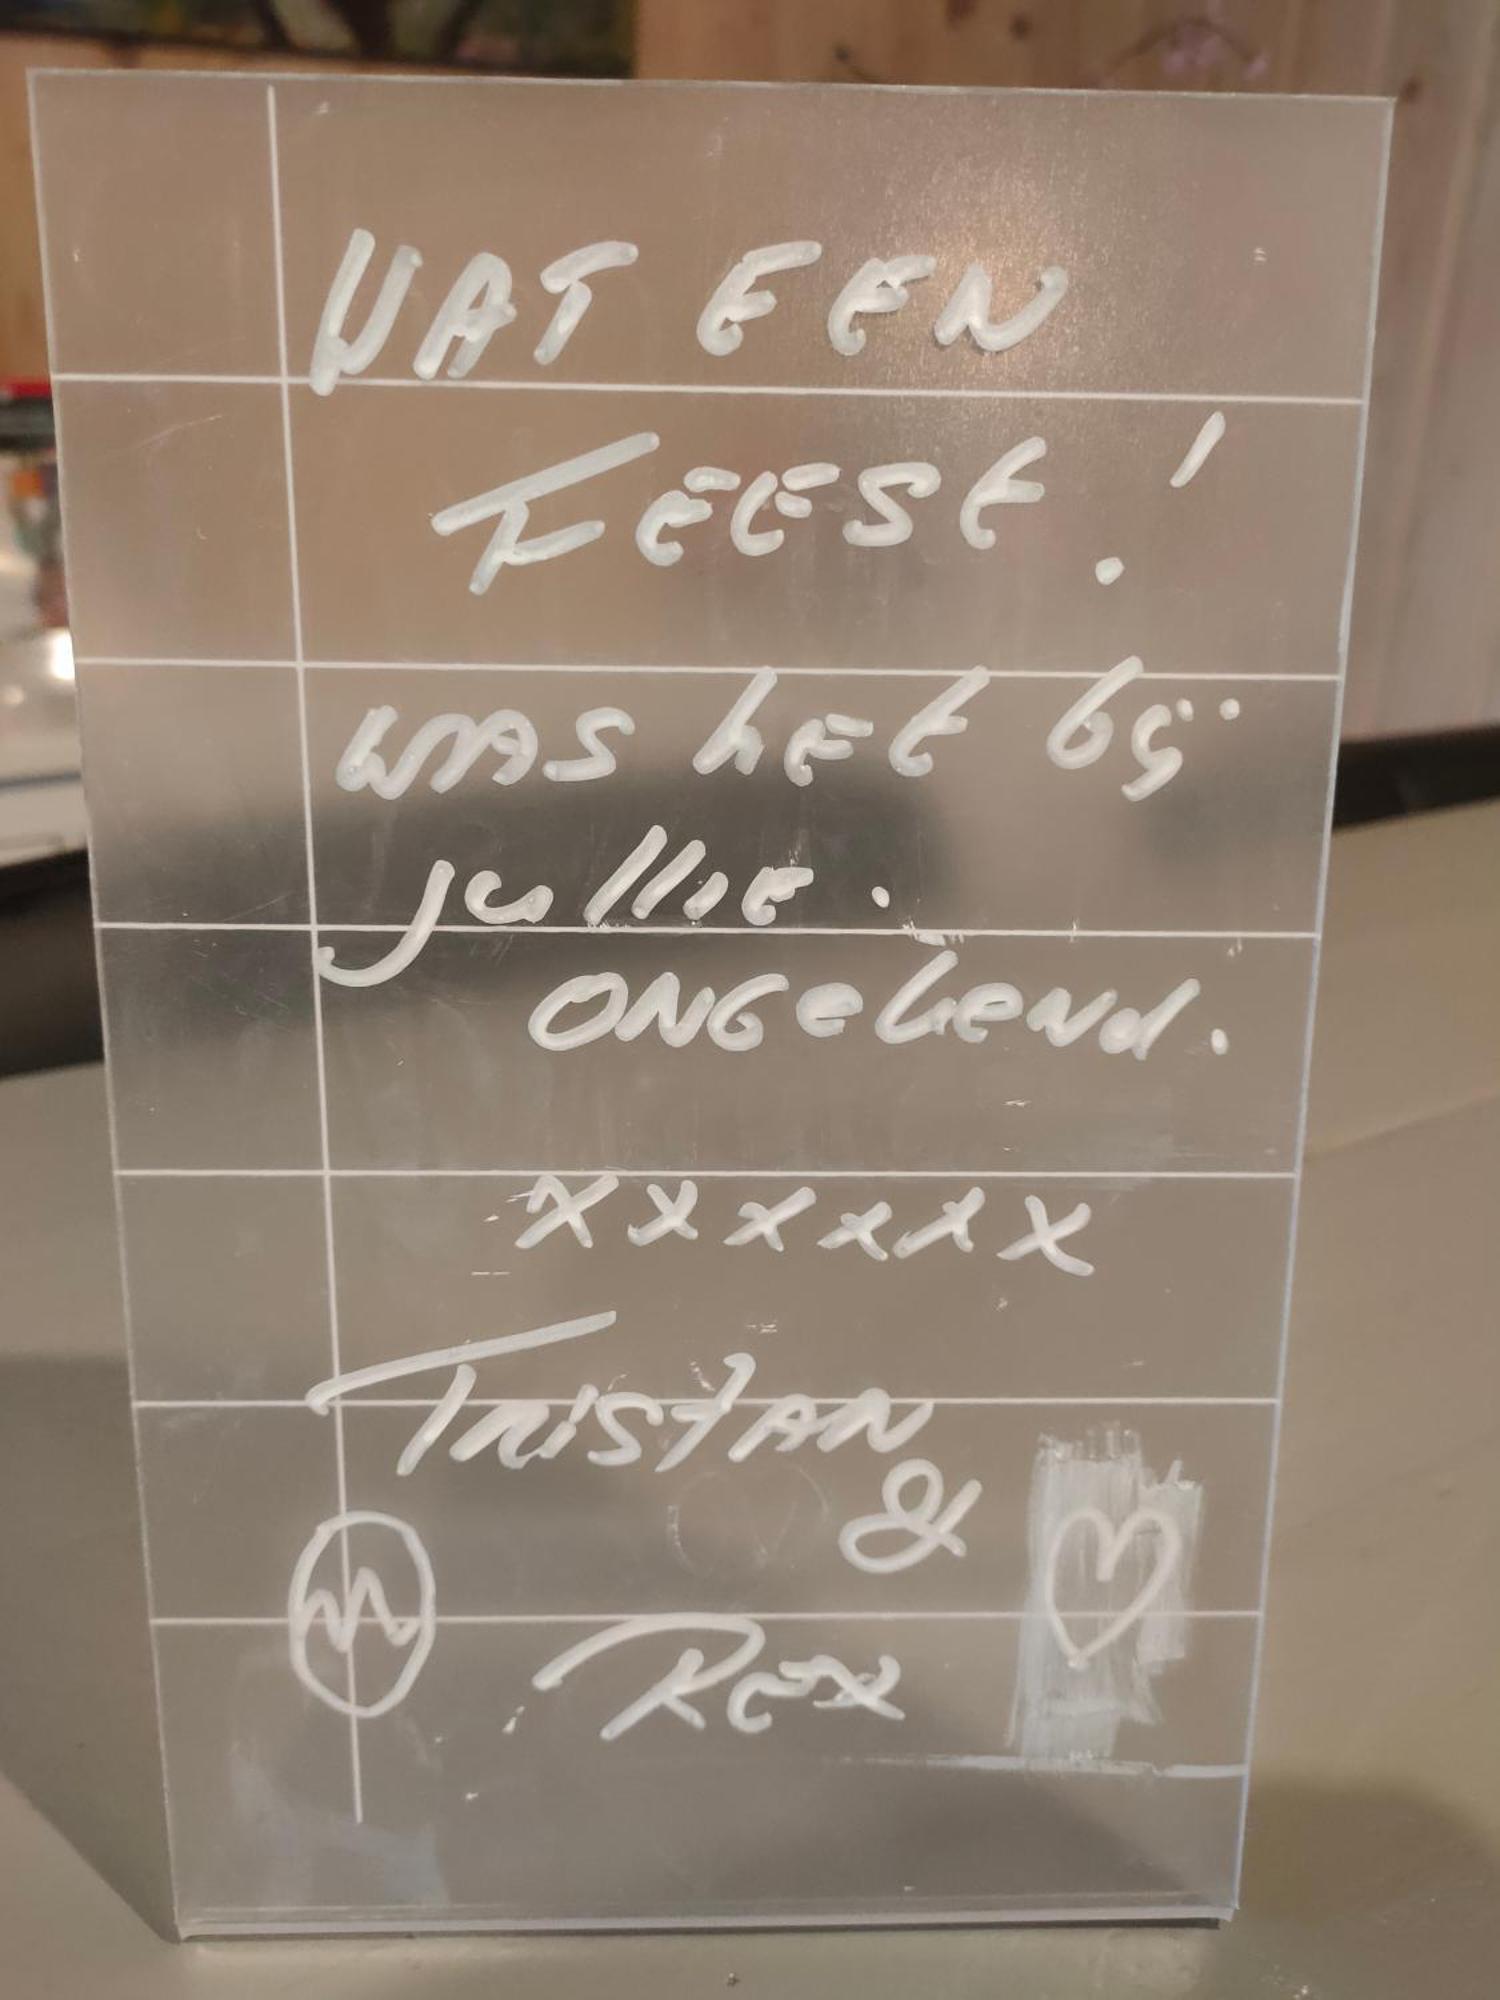 WAT EEN
FEESt!
was het bij
jullie.
ONGekend.
xxxxxx
TRISTAN
&
Rex